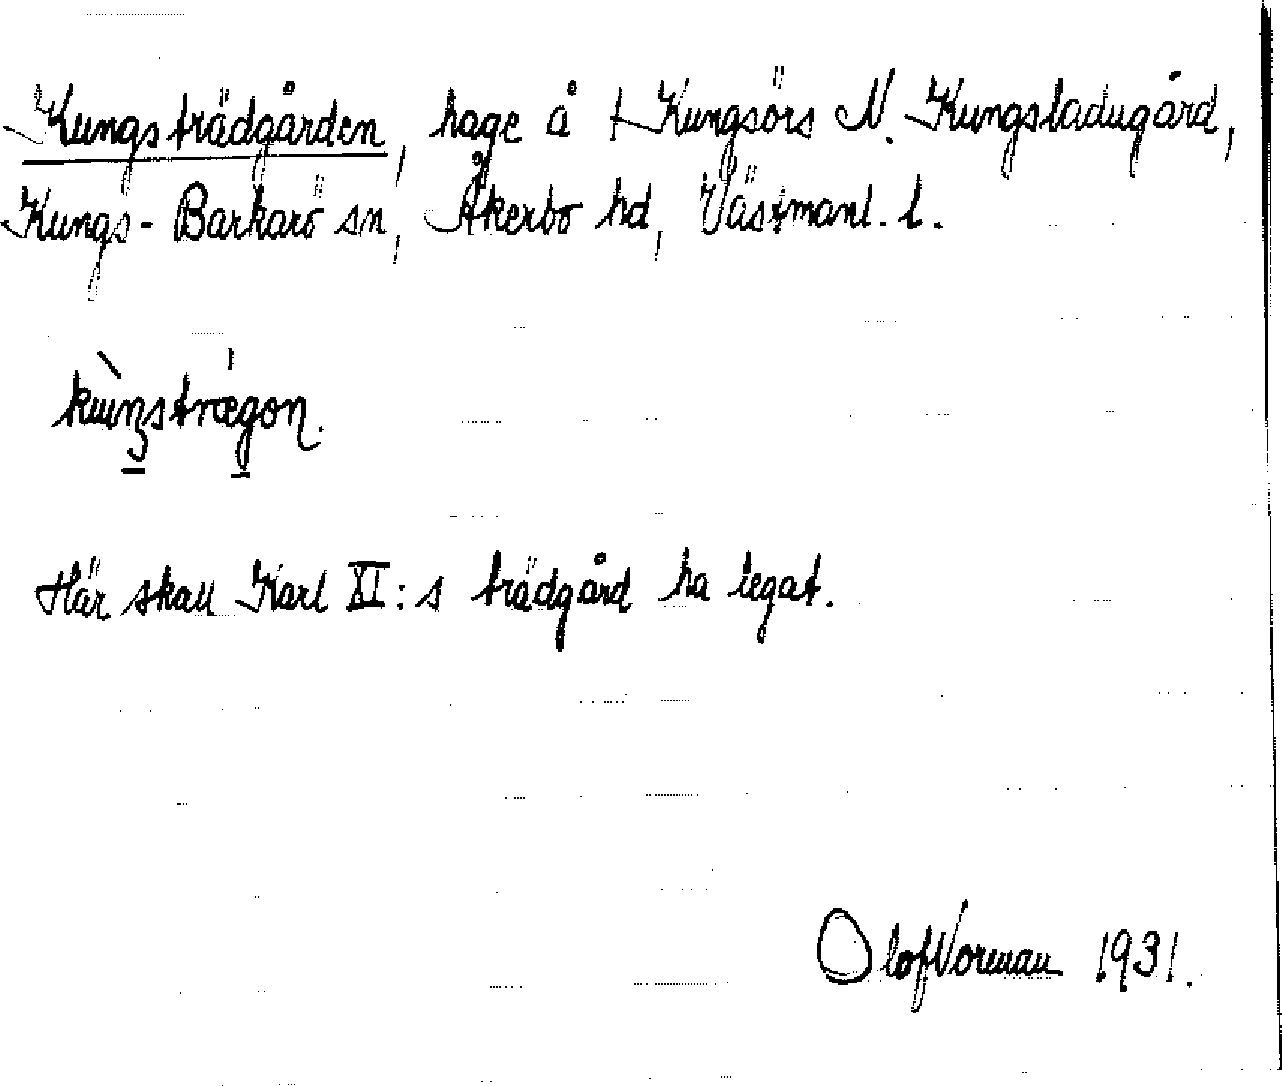 Kungsträdgården, hage å † Kungsörs N. Kungsladugård,
Kungs-Barkarö sn, Åkerbo hd, Västmanl. l.
Här skall Karl XI:s trädgård ha legat.
Olof Vorman 1931.